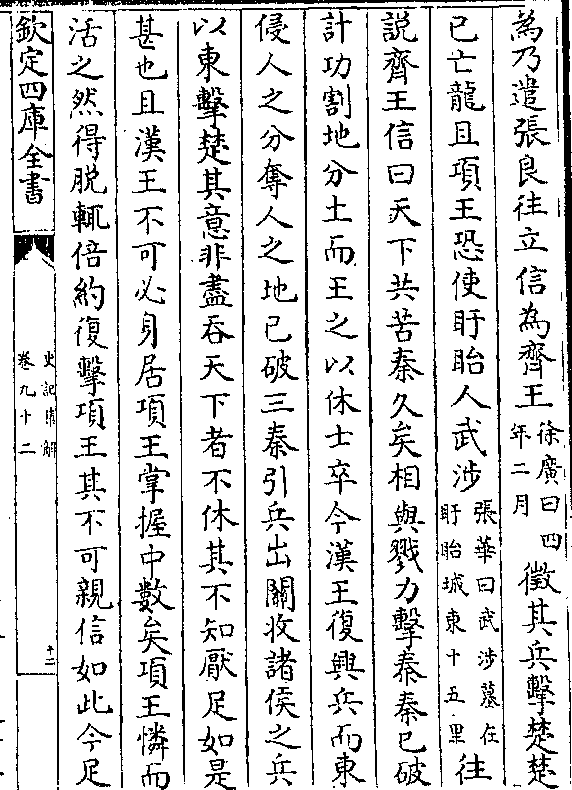 為乃遣張良往立信為齊王徐廣曰四年二月徵其兵擊楚楚
已亡龍且項王恐使盱眙人武渉張華曰武渉墓在盱眙城東十五里往
説齊王信曰天下共苦秦久矣相與戮力擊秦秦已破
計功割地分土而王之以休士卒今漢王復興兵而東
侵人之分奪人之地已破三秦引兵出關收諸侯之兵
以東擊楚其意非盡吞天下者不休其不知厭足如是
甚也且漢王不可必身居項王掌握中數矣項王憐而
活之然得脱輒倍約復擊項王其不可親信如此今足
欽定四庫全書
史記集解
卷九十二
十二